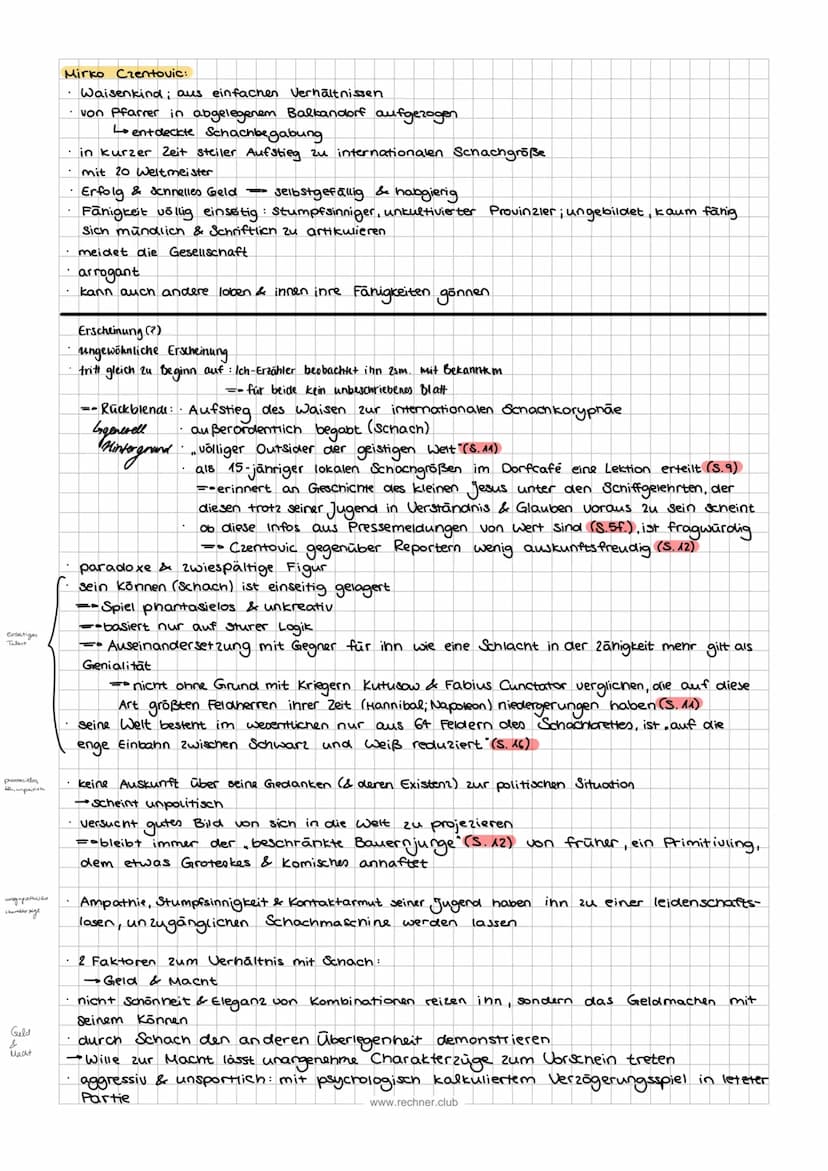 Mirko Czentovic:
· Waisenkind; aus einfachen Verhältnissen
· von Pfarrer in abgelegenem Balkandorf aufgezogen
↳ entdeckte Schachbegabung
· in kurzer Zeit steiler Aufstieg zu internationalen Schachgröße
· mit 20 Weltmeister
· Erfolg & schnelles Geld => selbstgefällig & habgierig
· Fähigkeit völlig einseitig: Stumpfsinniger, unkultivierter Provinzler; ungebildet, kaum fähig
sich mündlich & schriftlich zu artikulieren
· meidet die Gesellschaft
· arrogant
· kann auch andere loben & ihnen ihre Fähigkeiten gönnen
Erscheinung (?)
· ungewöhnliche Erscheinung
· tritt gleich zu Beginn auf: Ich-Erzähler beobachtet ihn zsm. mit Bekanntem
=> für beide kein unbeschriebenes Blatt
=> Rückblende: · Aufstieg des Waisen zur internationalen Schachkoryphäe
↳generell · außerordentlich begabt (Schach)
Hintergrund · „völliger Outsider der geistigen Welt" (S. 11)
· als 15-jähriger lokalen Schachgrößen im Dorfcafé eine Lektion erteilt (S. 9)
=> erinnert an Geschichte des kleinen Jesus unter den Schiffgelehrten, der
diesen trotz seiner Jugend in Verständnis & Glauben voraus zu sein scheint
· ob diese Infos aus Pressemeldungen von Wert sind (S. 5f.), ist fragwürdig
=> Czentovic gegenüber Reportern wenig auskunftsfreudig (S. 12)
· paradoxe & zwiespältige Figur
· sein Können (Schach) ist einseitig gelagert
=> Spiel phantasielos & unkreativ
=> basiert nur auf sturer Logik
=> Auseinandersetzung mit Gegner für ihn wie eine Schlacht in der Zähigkeit mehr gilt als
Genialität
=> nicht ohne Grund mit Kriegern Kutusow & Fabius Cunctator verglichen, die auf diese
Art größten Feldherren ihrer Zeit (Hannibal; Napoleon) niedergerungen haben (S. 11)
· seine Welt besteht im wesentlichen nur aus 64 Feldern des Schachbrettes, ist „auf die
enge Einbahn zwischen Schwarz und Weiß reduziert" (S. 16)
einseitiges
Talent
· keine Auskunft über seine Gedanken (& deren Existenz) zur politischen Situation
→ scheint unpolitisch
· versucht gutes Bild von sich in die Welt zu projezieren
=> bleibt immer der „beschränkte Bauernjunge" (S. 12) von früher, ein Primitivling,
dem etwas Groteskes & Komisches anhaftet
· Ampathie, Stumpfsinnigkeit & Kontaktarmut seiner Jugend haben ihn zu einer leidenschafts-
losen, unzugänglichen Schachmaschine werden lassen
· 2 Faktoren zum Verhältnis mit Schach:
→ Geld & Macht
· nicht Schönheit & Eleganz von Kombinationen reizen ihn, sondern das Geldmachen mit
seinem Können
· durch Schach den anderen Überlegenheit demonstrieren
→ Wille zur Macht lässt unangenehme Charakterzüge zum Vorschein treten
· aggressiv & unsportlich: mit psychologisch kalkuliertem Verzögerungsspiel in letzter
Partie
Geld
&
Macht
www.rechner.club